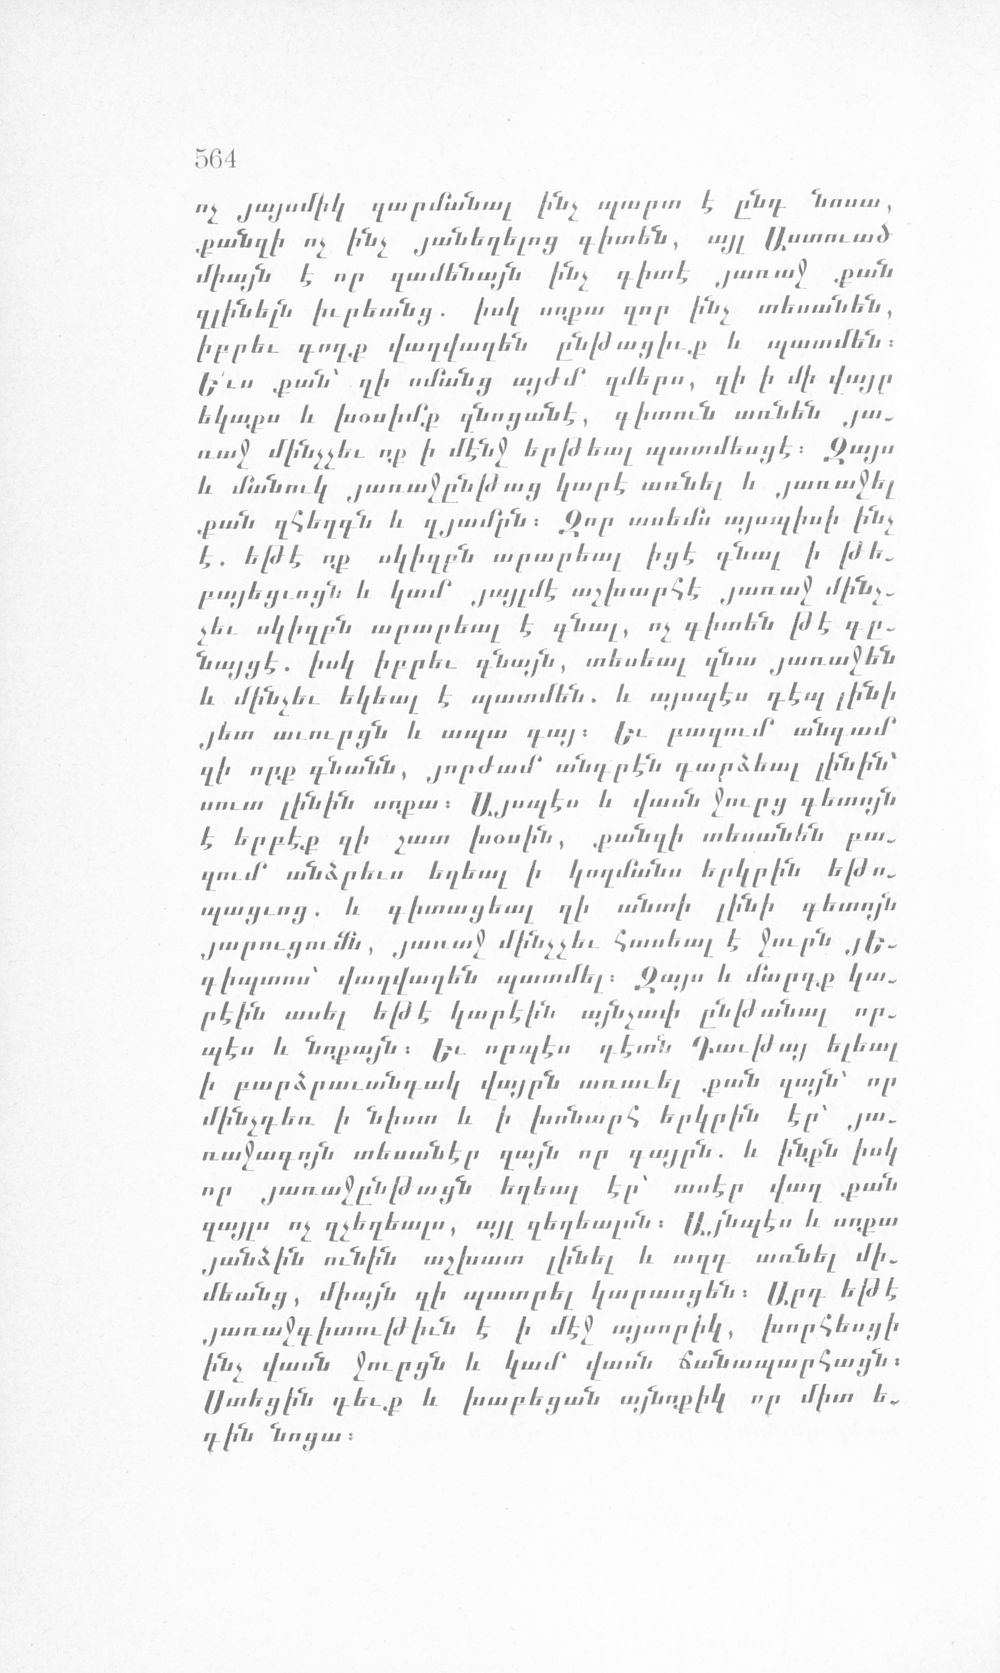 564
ոչ յայսմիկ զարմանալ ինչ պարտ է ընդ նոսա,
քանզի ոչ ինչ յանեղելոց գիտեն, այլ Աստուած
միայն է որ զամենայն ինչ գիտէ յառաջ քան
զլինելն իւրեանց. իսկ սոքա զոր ինչ տեսանեն,
իբրեւ գողք վաղվաղեն ընթացիւք և պատմեն։
Ե՛ւս քան՝ զի ոմանց այժմ զմերս, զի ի մի վայր
եկաքս և խօսիմք զնոցանէ, գիտուն առնեն յա֊
ռաջ մինչչեւ ոք ի մէնջ երթեալ պատմեսցէ։ Զայս
և մանուկ յառաջընթաց կարէ առնել և յառաջել
քան զհեղգն և զյամրն։ Զոր ասեմս այսպիսի ինչ
է. եթէ ոք սկիզբն արարեալ իցէ գնալ ի թե֊
բայեցւոցն և կամ յայլմէ աշխարհէ յառաջ մինչ֊
չեւ սկիզբն արարեալ է գնալ, ոչ գիտեն թէ գը֊
նայցէ. իսկ իբրեւ գնայն, տեսեալ զնա յառաջեն
և մինչեւ եկեալ է պատմեն. և այսպէս դէպ լինի
յետ աւուրցն և ապա գայ։ Եւ բազում անգամ
զի որք գնանն, յորժամ անդրէն դարձեալ լինին՝
սուտ լինին սոքա։ Այսպէս և վասն ջուրց գետոյն
է երբէք զի շատ խօսին, քանզի տեսանեն բա֊
զում անձրեւս եղեալ ի կողմանս երկրին եթո֊
պացւոց. և գիտացեալ զի անտի լինի գետոյն
յարուցումն, յառաջ մինչչեւ հասեալ է ջուրն յԵ֊
գիպտոս՝ վաղվաղեն պատմել։ Զայս և մարդք կա֊
րէին ասել եթէ կարէին այնչափ ընթանալ որ֊
պէս և նոքայն։ Եւ որպէս դէտն Դաւթայ ելեալ
ի բարձրաւանդակ վայրն առաւել քան զայն՝ որ
մինչդեռ ի նիստ և ի խոնարհ երկրին էր՝ յա֊
ռաջագոյն տեսանէր զայն որ գայրն. և ինքն իսկ
որ յառաջընթացն եղեալ էր՝ ասէր վաղ քան
զայլս ոչ զչեղեալս, այլ զեղեալսն։ Այնպէս և սոքա
յանձին ունին աշխատ լինել և ազդ առնել մի֊
մեանց, միայն զի պատրել կարասցեն։ Արդ եթէ
յառաջգիտութիւն է ի մէջ այսորիկ, խորհեսցի
ինչ վասն ջուրցն և կամ վասն ճանապարհացն։
Ստեցին դեւք և խաբեցան այնոքիկ որ միտ ե֊
դին նոցա։